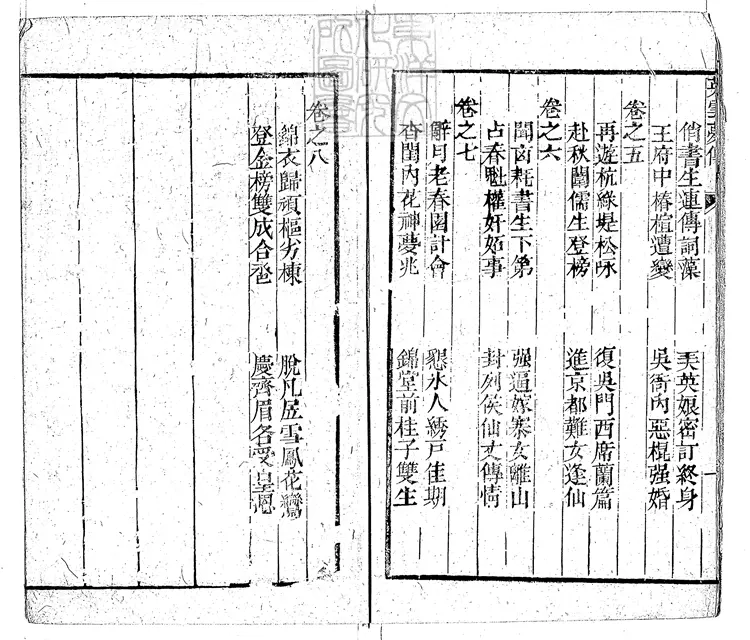 英雲夢傳
俏書生連傳詞藻　美英娘密訂終身
王府中椿萱遭變　吳衙內惡棍强婚
卷之五
再遊杭綠堤松咏　復吳門西席蘭篇
赴秋闈儒生登榜　進京都難女逢仙
卷之六
聞凶耗書生下第　强逼嫁寨女離山
占春魁權奸妬事　封列侯仙丈傳情
卷之七
辭月老春園計會　懇氷人綉戶佳期
香閨內花神夢兆　錦堂前桂子雙生
卷之八
錦衣歸頑樞劣棟　脫凡居雪鳳花鸞
登金榜雙成合卺　慶齊眉各受皇恩